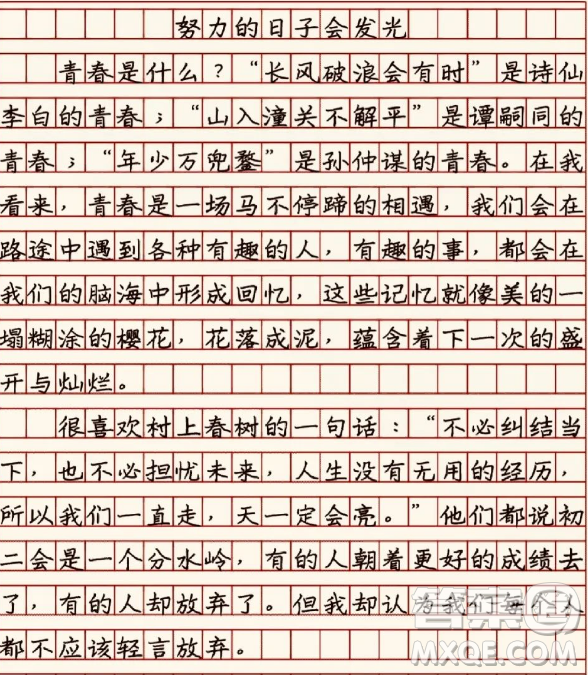 努力的日子会发光
青春是什么？“长风破浪会有时”是诗仙
李白的青春；“山入潼关不解平”是谭嗣同的
青春；“年少万兜鍪”是孙仲谋的青春。在我
看来，青春是一场马不停蹄的相遇，我们会在
路途中遇到各种有趣的人，有趣的事，都会在
我们的脑海中形成回忆，这些记忆就像美的一
塌糊涂的樱花，花落成泥，蕴含着下一次的盛
开与灿烂。
很喜欢村上春树的一句话：“不必纠结当
下，也不必担忧未来，人生没有无用的经历，
所以我们一直走，天一定会亮。”他们都说初
二会是一个分水岭，有的人朝着更好的成绩去
了，有的人却放弃了。但我却认为我们每个人
都不应该轻言放弃。
答案圈
MXQE.COM